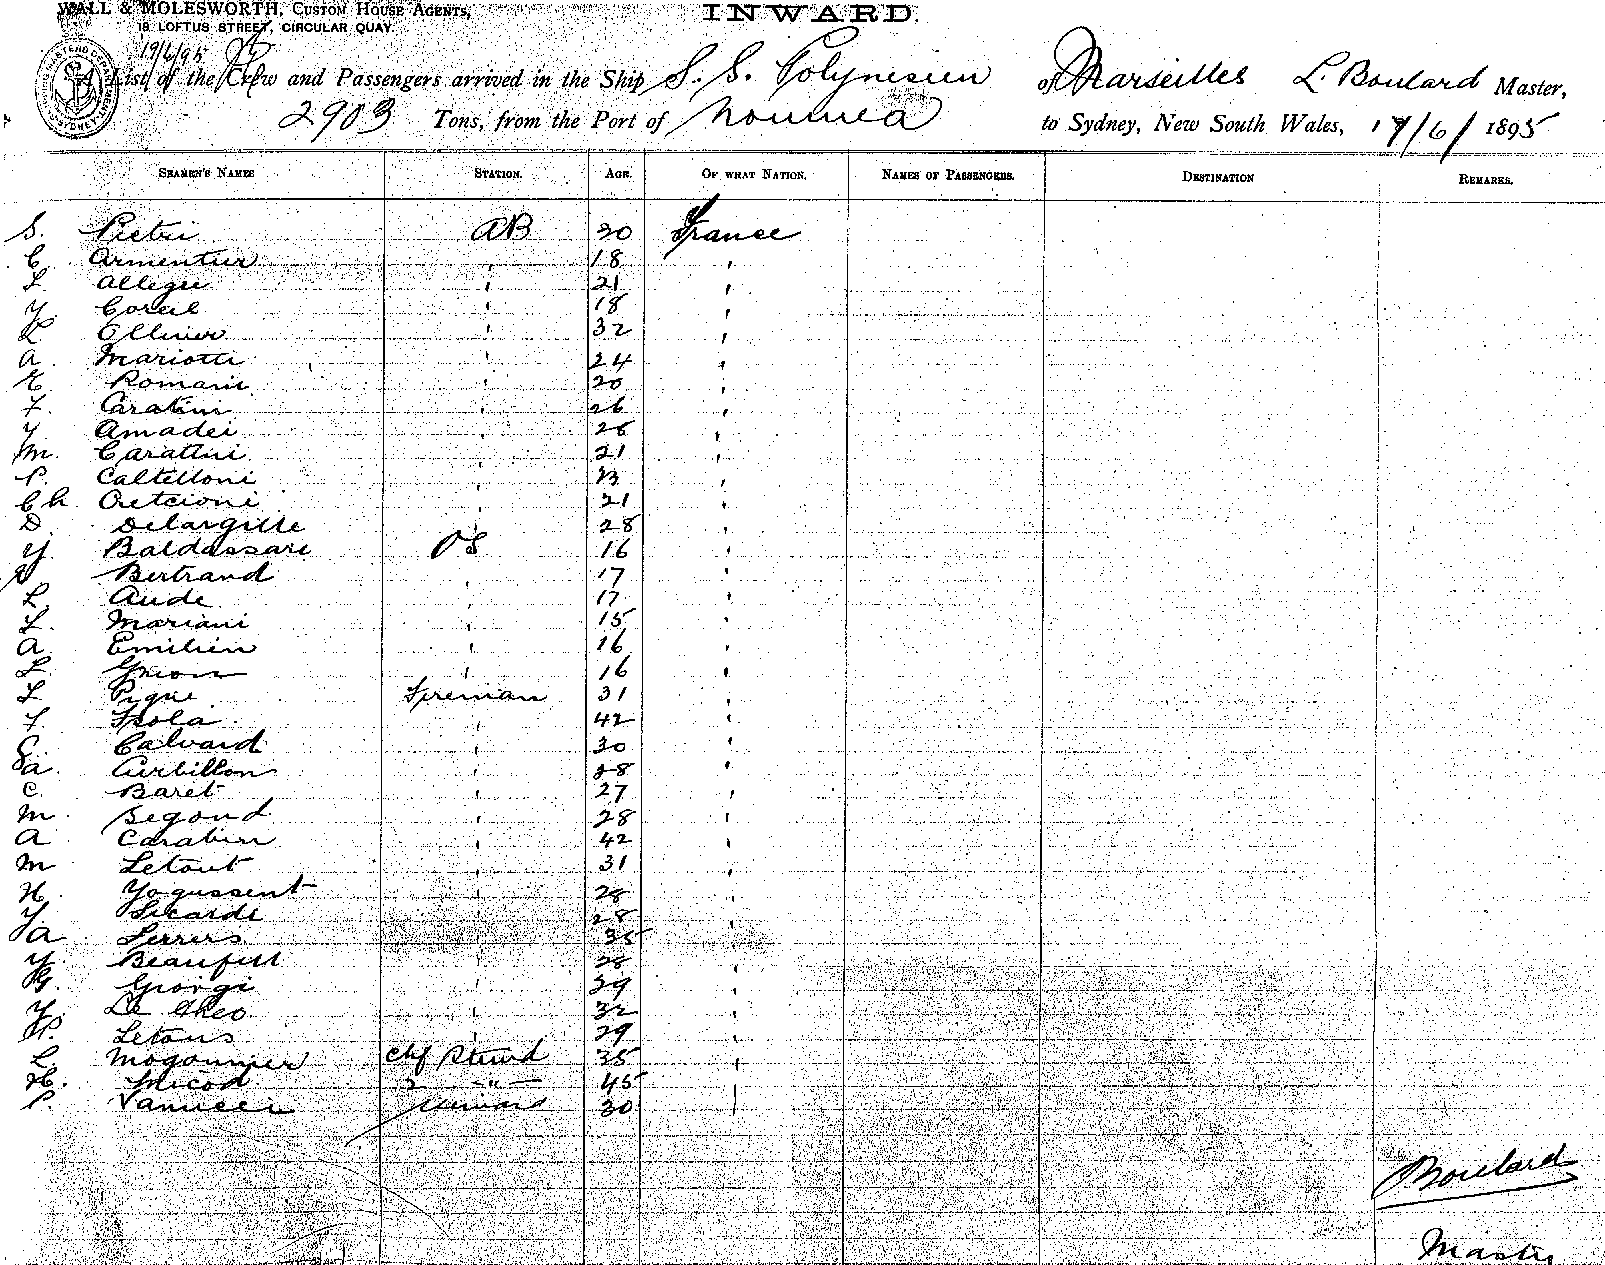 WALL & MOLESWORTH, CUSTOM HOUSE AGENTS,
18 LOFTUS STREET, CIRCULAR QUAY.
INWARD.
19/6/95
A List of the Crew and Passengers arrived in the Ship S. S. Polynesien of Marseilles L. Boulard Master,
2903 Tons, from the Port of Noumea to Sydney, New South Wales, 17/6/1895
SEAMEN'S NAMES STATION. AGE. OF WHAT NATION. NAMES OF PASSENGERS. DESTINATION REMARKS.
S. Pietri AB 20 France
C. Armentier " 18 "
L Allegri " 21 "
Y. Coreil " 18 "
L Ollivier " 32 "
A. Mariotti 24 "
E. Romani " 20 "
F. Caratini " 26 "
Y Amadei " 26 "
M. Carattini " 21 "
P. Caltelloni " 23 "
Ch. Oretcioni " 21 "
D. Delargille 28 "
Y. Baldassari OS 16 "
Bertrand " 17 "
L. Aude " 17 "
L. Mariani " 15 "
A Emilien " 16 "
L. " 16 "
L Pigne Fireman 31 "
F. Isola " 42 "
C. Calvard " 30 "
A. Curbillon " 28 "
C. Baret " 27 "
M. Segond " 28 "
A Carabin " 42 "
M Letout " 31 "
N. Yogussent " 28 "
Y. Sicardi " 28 "
A Ferrers " 35 "
Y. Beaufils " 28 "
G. Giorgi " 29 "
Y. Le Gheo " 32 "
P. Letous " 29 "
L Mogonnier Chf Stewd 35 "
H. Micod 2 " 45 "
P. Vanucci 30 "
Boulard
Master